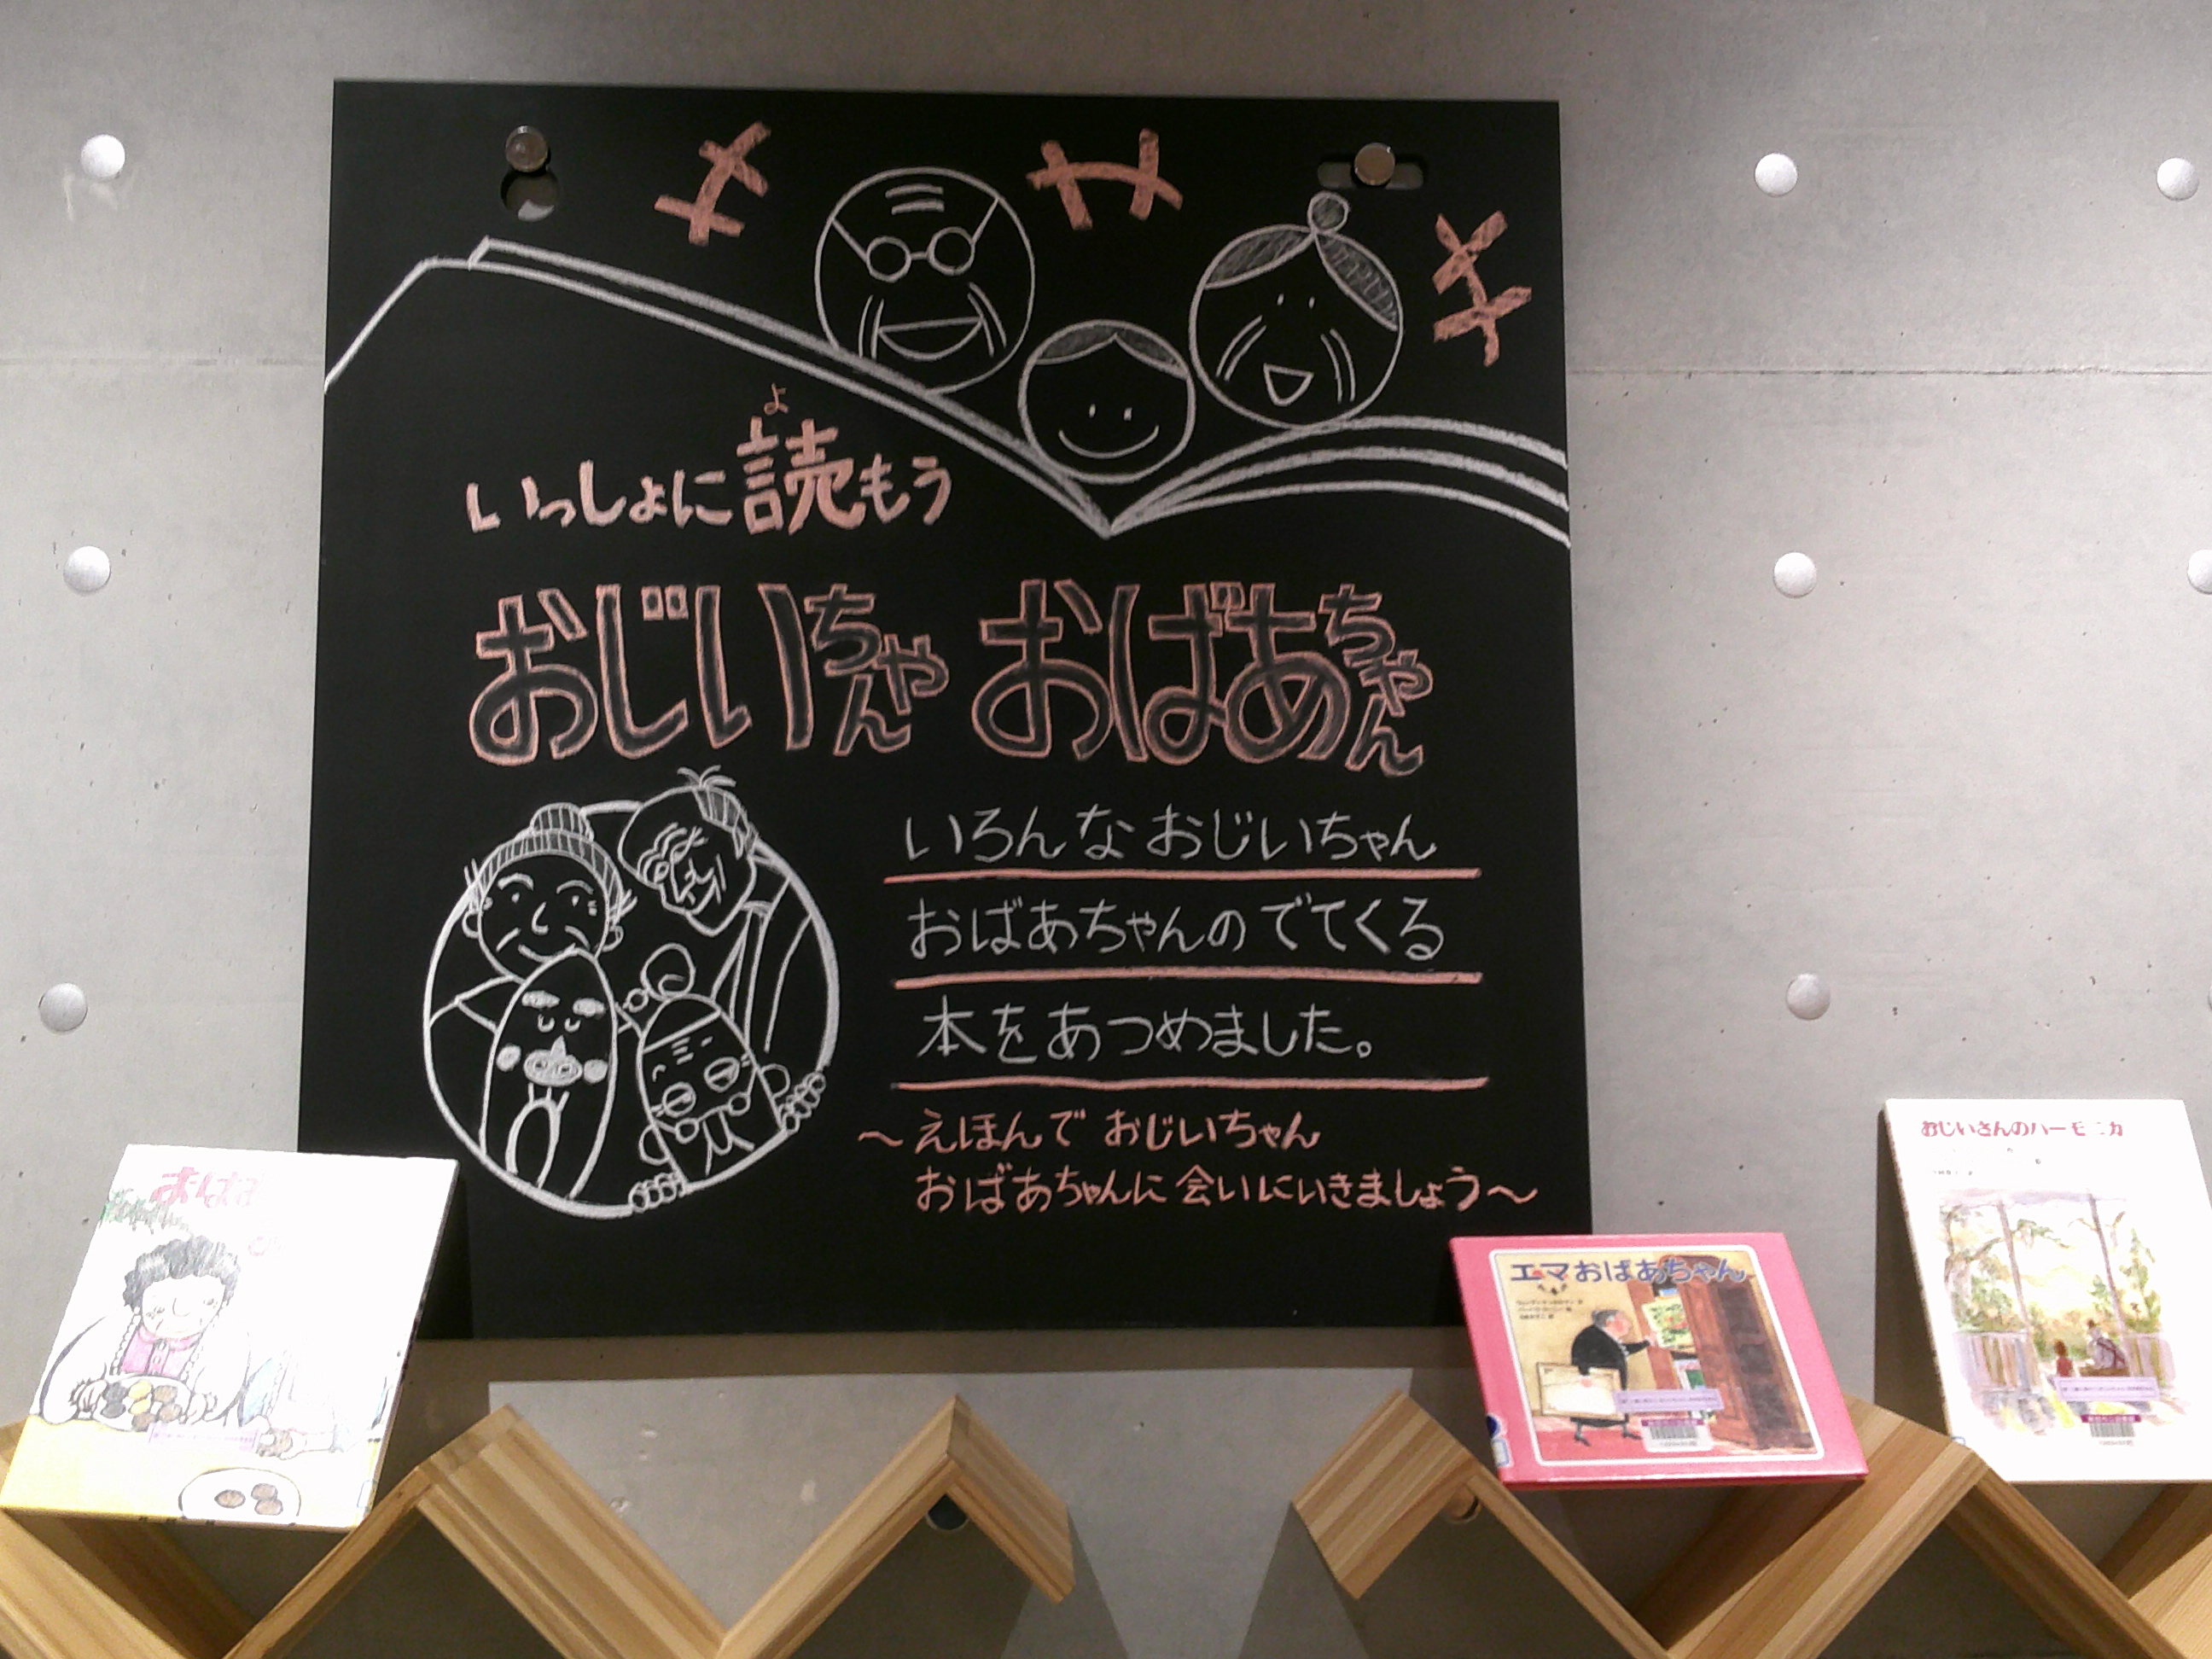 よ
いっしょに読もう
おじいちゃん おばあちゃん
いろんなおじいちゃん
おばあちゃんのでてくる
本をあつめました。
～えほんで おじいちゃん
おばあちゃんに会いにいきましょう～
エマおばあちゃん
おじいさんのハーモニカ